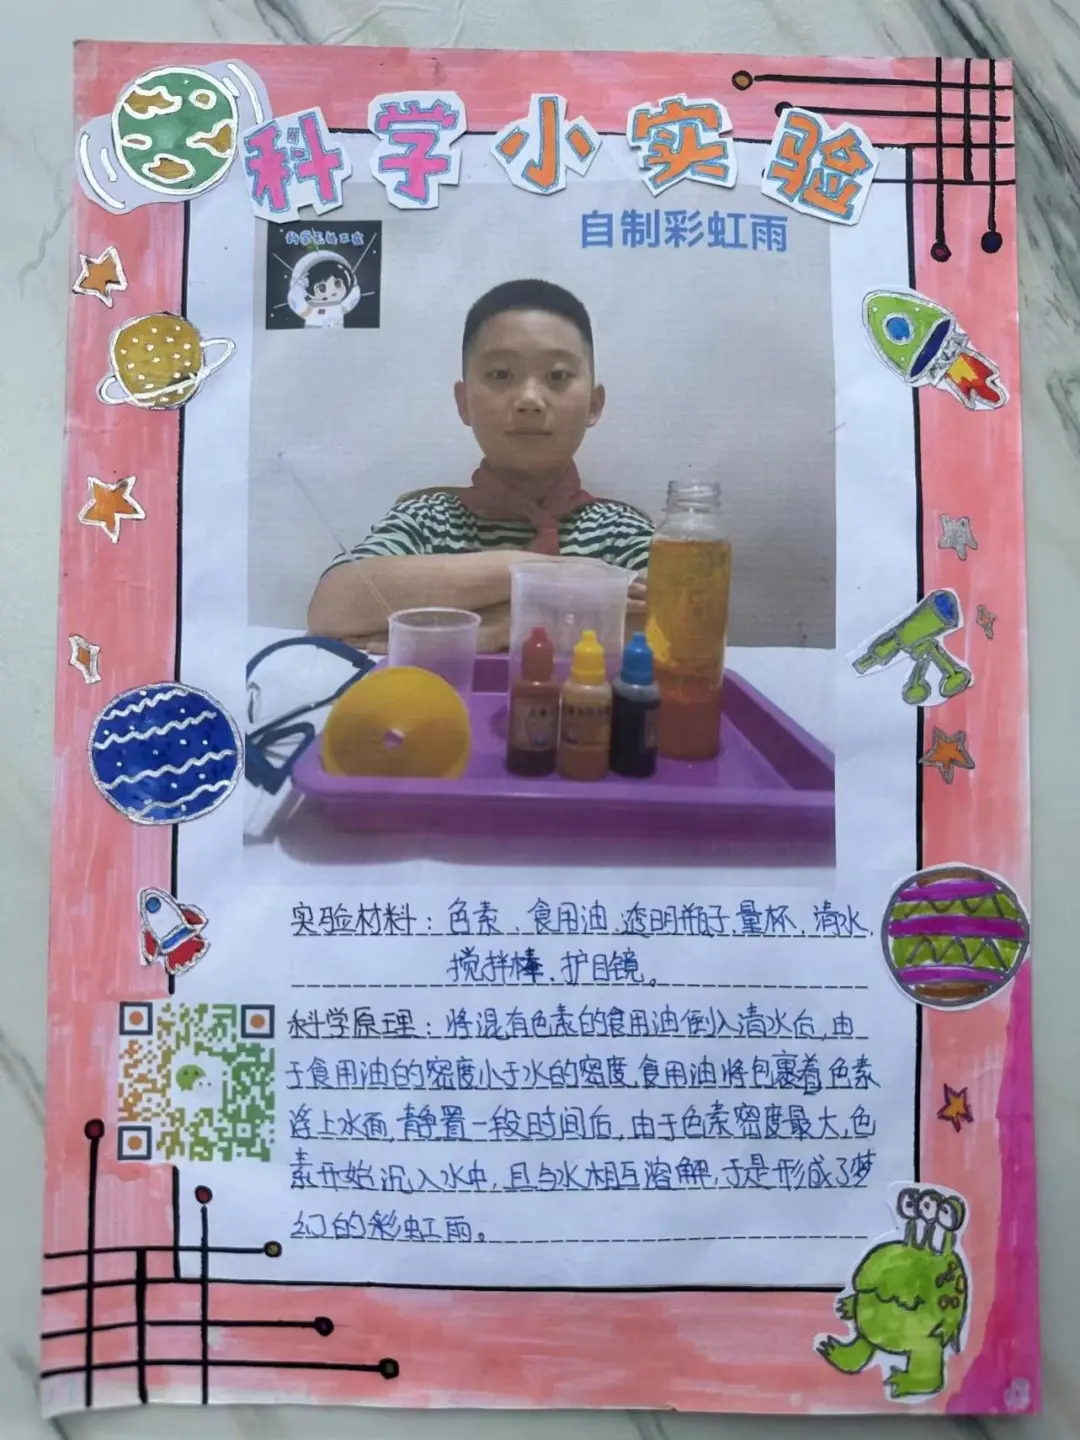 科学小实验
自制彩虹雨
实验材料：色素、食用油、透明瓶子、量杯、清水、
搅拌棒、护目镜。
科学原理：将混有色素的食用油倒入清水后，由
于食用油的密度小于水的密度，食用油将包裹着色素
浮上水面，静置一段时间后，由于色素密度最大，色
素开始沉入水中，且与水相互溶解，于是形成了梦
幻的彩虹雨。